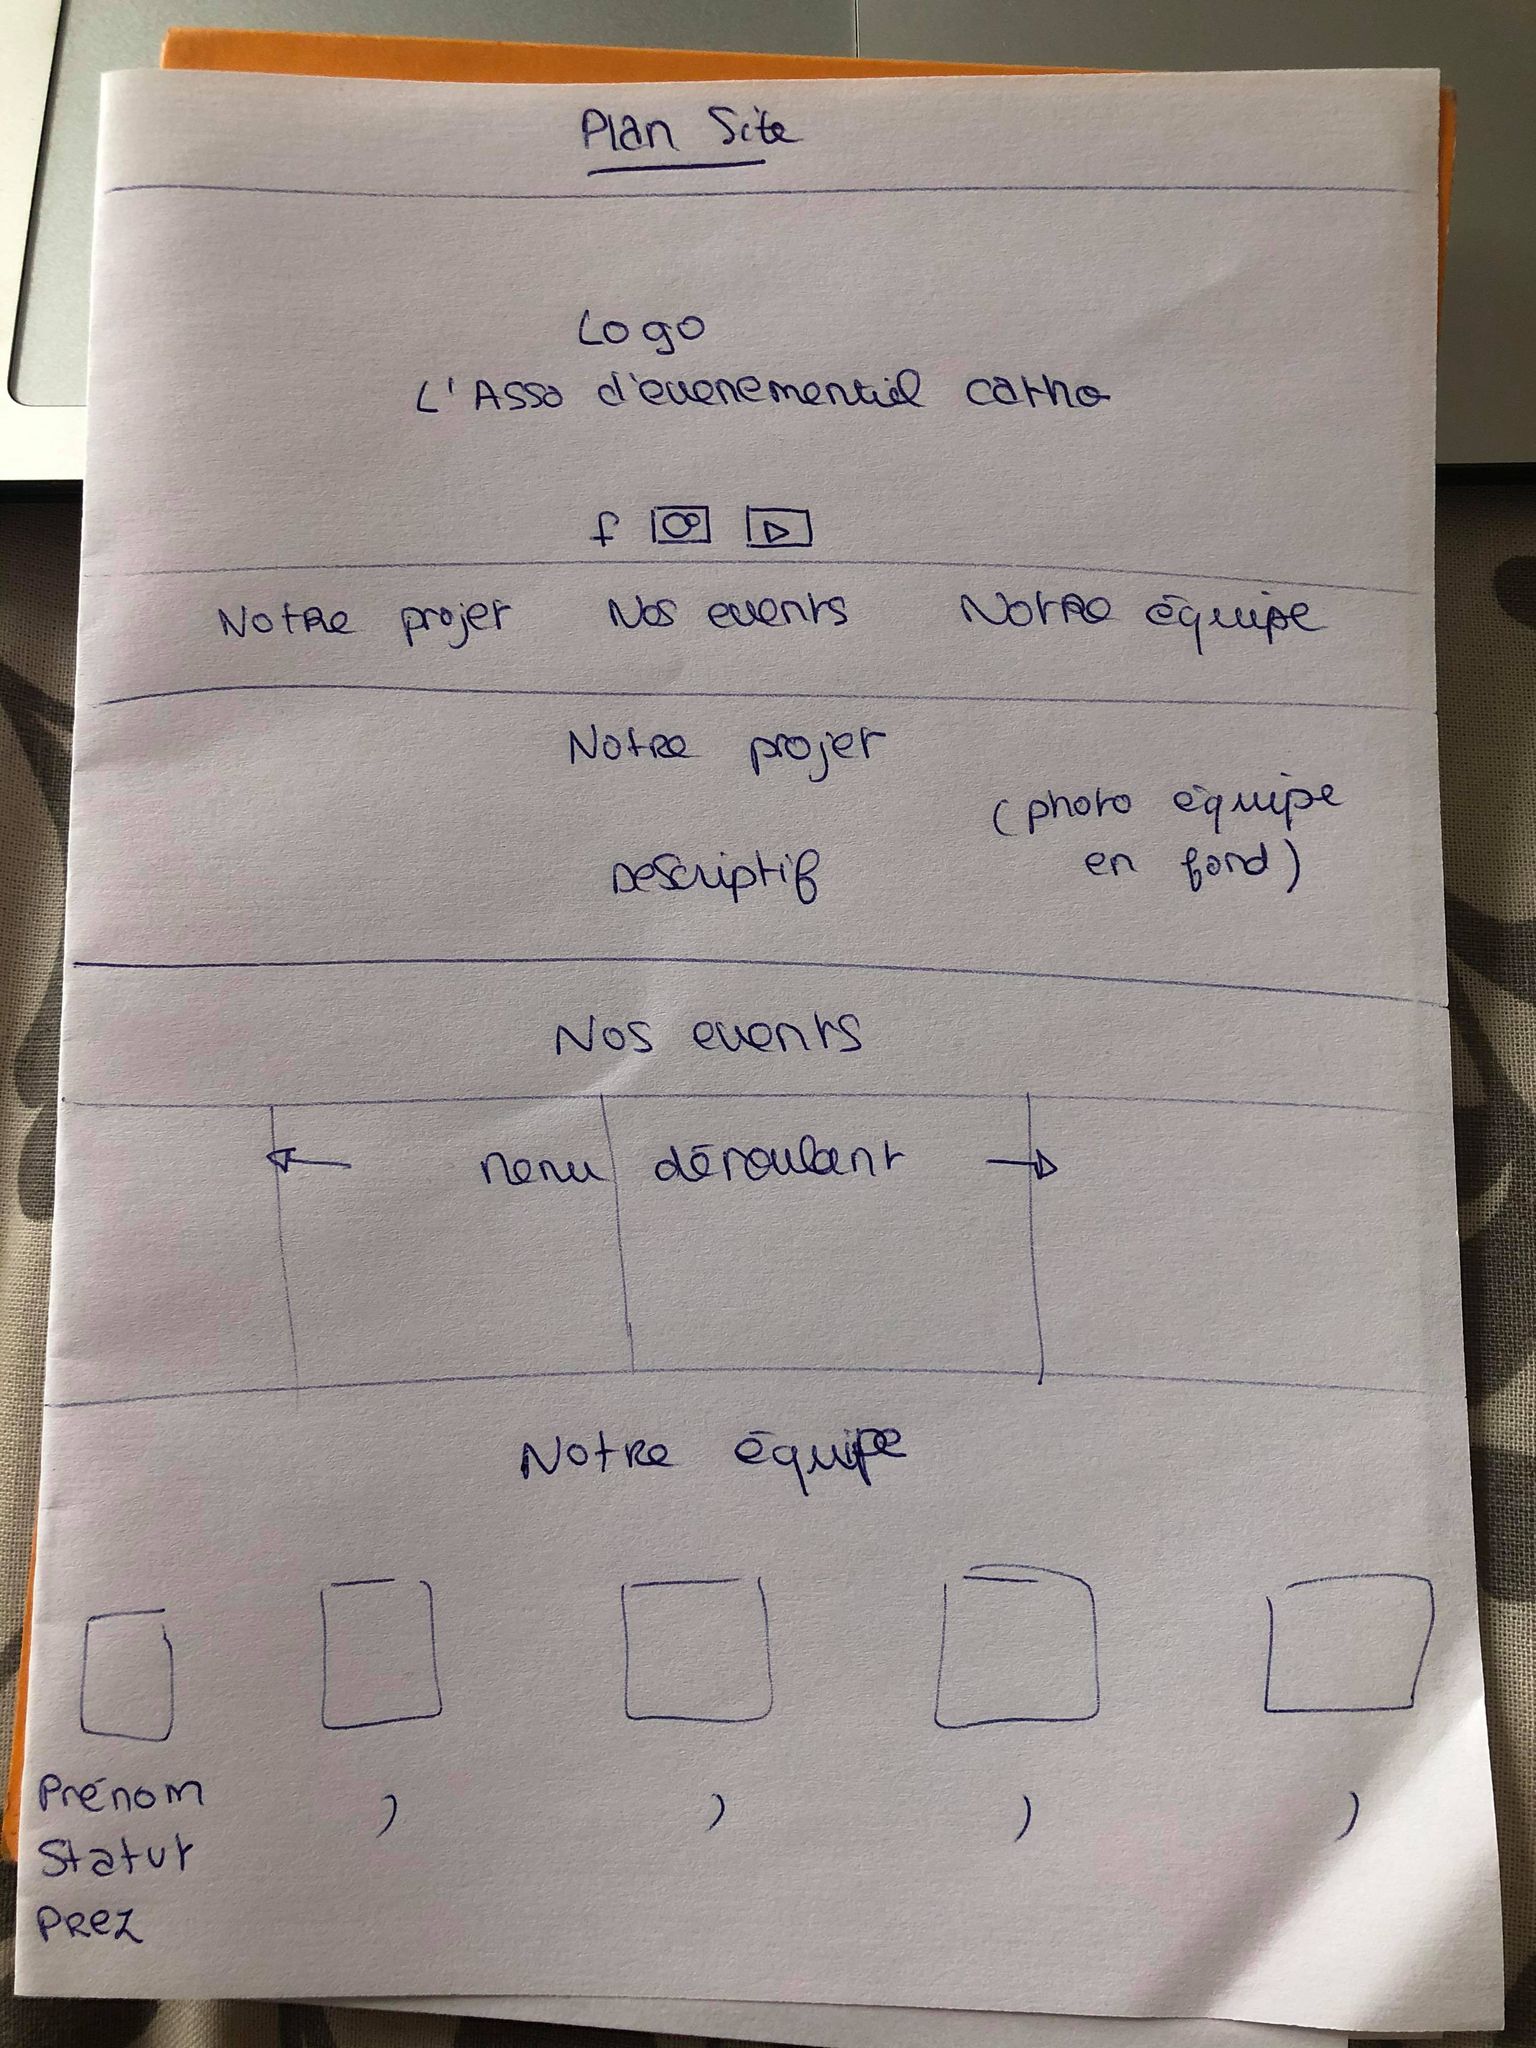 Plan Site
Logo
L'Asso d'evenementiel catho
f
Notre projet Nos events Notre équipe
Notre projet
(photo équipe
en fond)
Descriptif
Nos events
menu déroulant
Notre équipe
Prénom
Statut
Prez